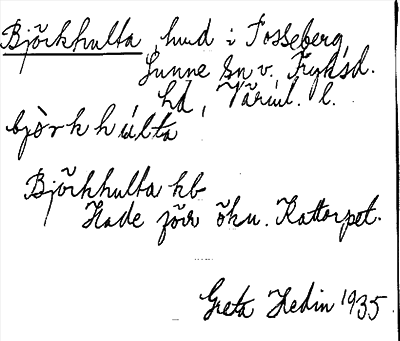 Björkhulta, hmd i Fosseberg,
Sunne sn v. Fryksd.
hd, Värml. l.
björkhúlta
Björkhulta hb
Hade förr ökn. Kattorpet.
Greta Hedin 1935